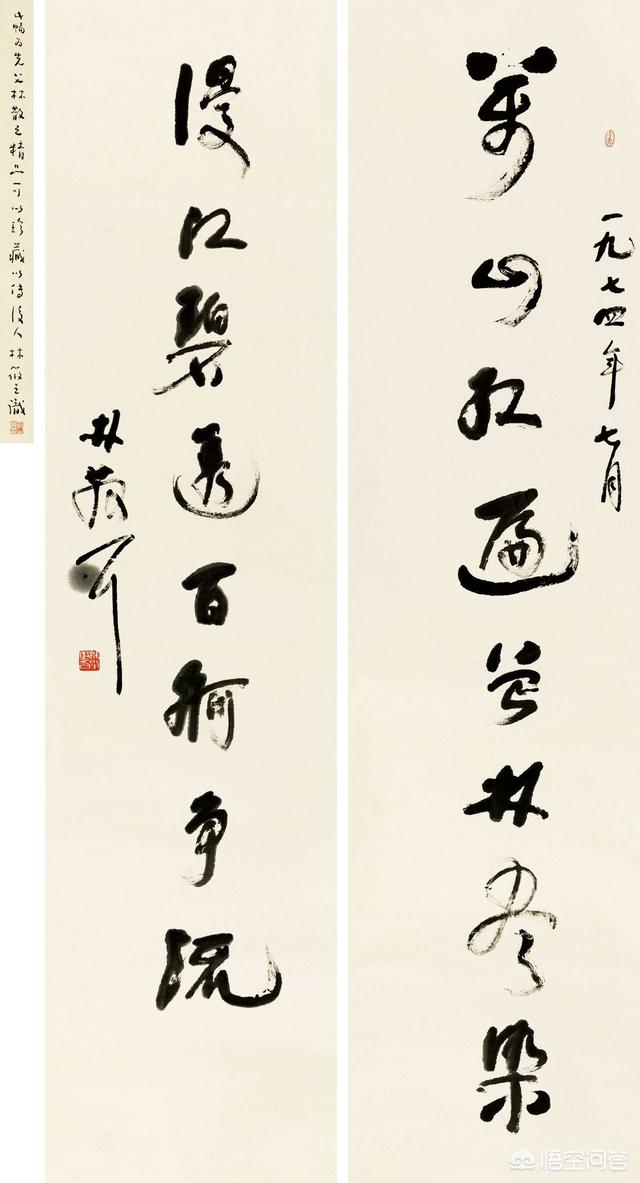 一九七四年七月
萬山红遍曾林尽染
漫江碧透百舸争流
林散耳
此幅为先父林散之精品可以珍藏以传後人 林筱之識
悟空问答